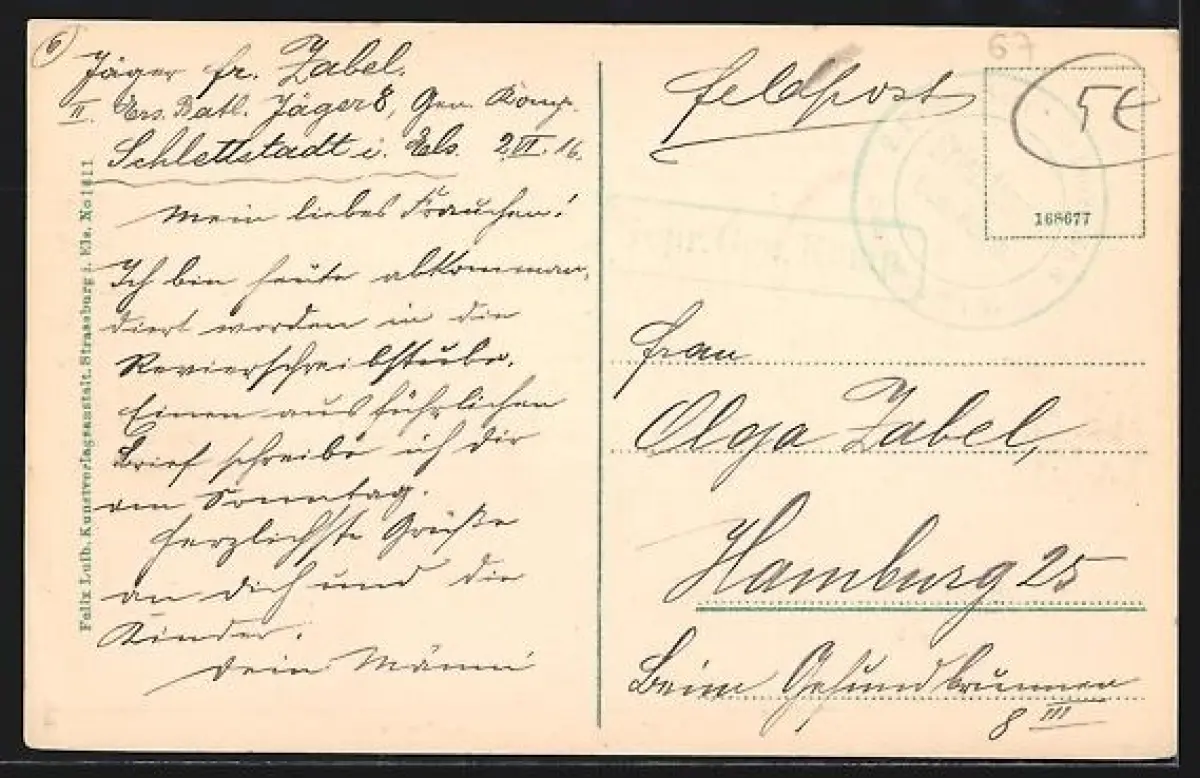 6
Jäger Fr. Zabel.
II. Ers. Batl. Jäger 8, Gen. Komp.
Schlettstadt i. Els. 2.VI.16.
Mein liebes Frauchen!
Ich bin heute abkomman-
diert worden in die
Revierschreibstube.
Einen ausführlichen
Brief schreibe ich dir
am Sonntag.
Herzlichste Grüße
an dich und die
Kinder.
Dein Männi
Felix Luib, Kunstverlagsanstalt, Strassburg i. Els. No 1411
Feldpost
67
5€
168677
Frau
Olga Zabel,
Hamburg 25
Beim Gesundbrunnen
8 III